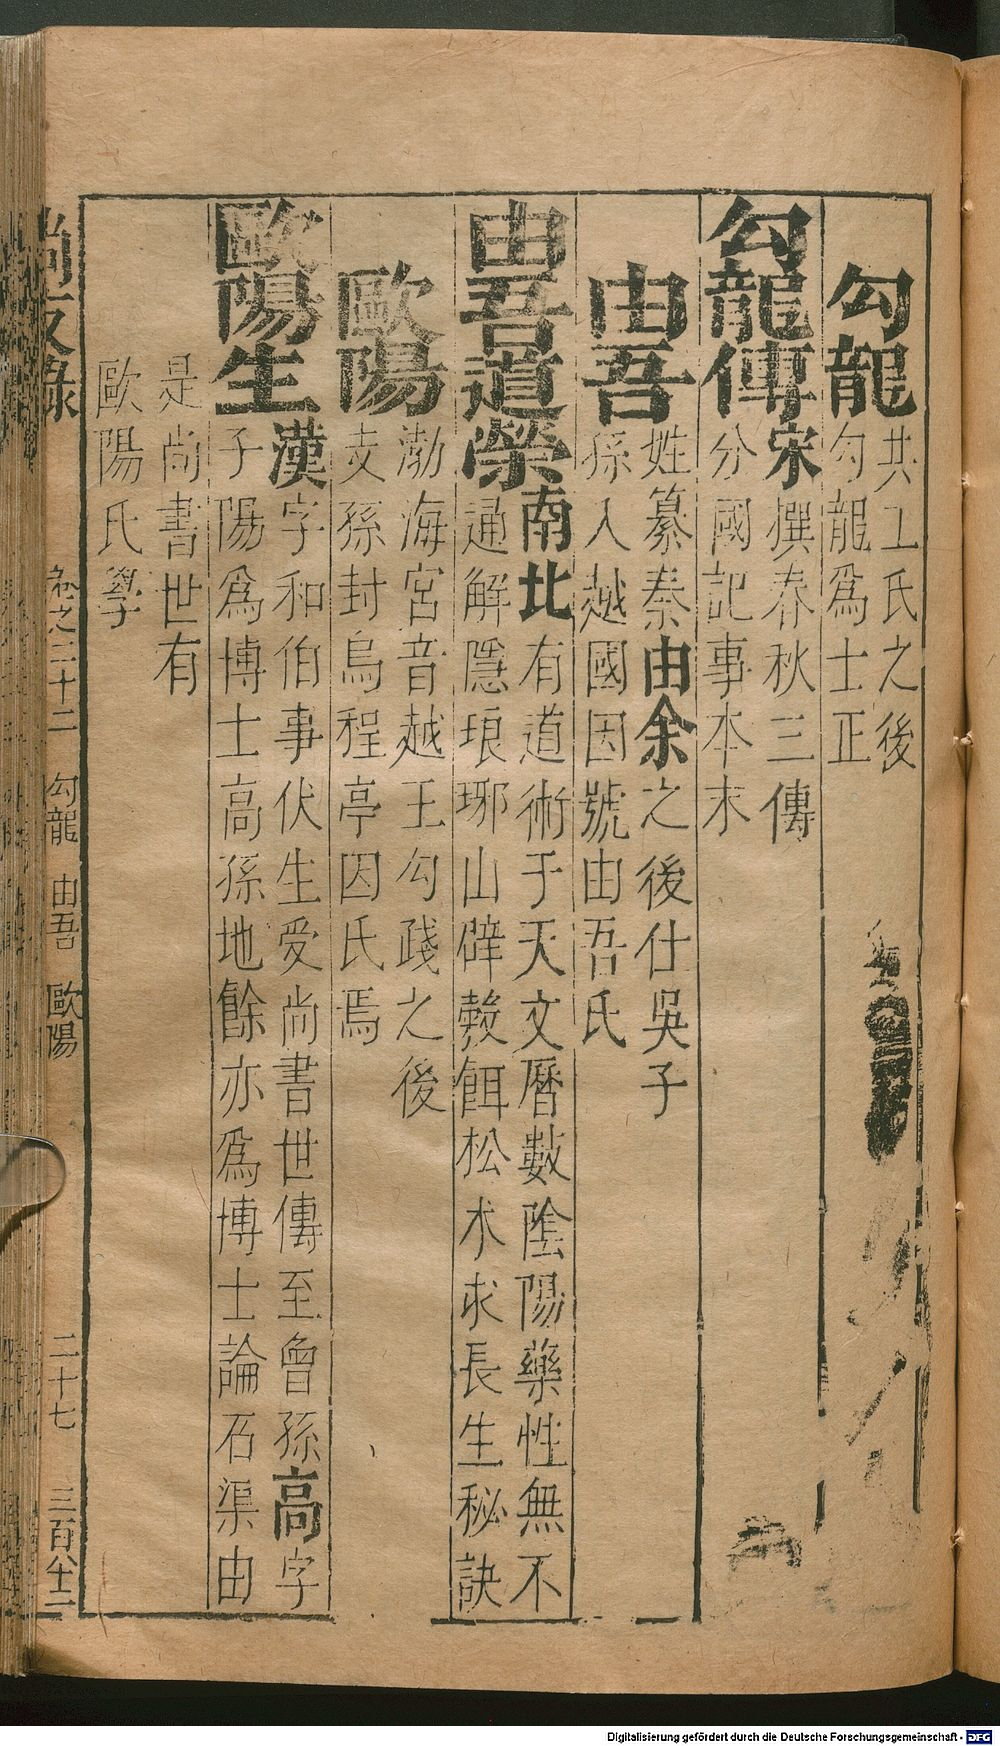 勾龍
共工氏之後
勾龍爲士正
勾龍傳
宋撰春秋三傳
分國記事本末
由吾
姓纂秦由余之後仕吳子
孫入越國因號由吾氏
由吾道榮
南北有道術于天文曆數陰陽藥性無不
通解隱琅琊山辟穀餌松朮求長生秘訣
歐陽
渤海宮音越王勾踐之後
支孫封烏程亭因氏焉
歐陽生
漢字和伯事伏生受尚書世傳至曾孫高字
子陽爲博士高孫地餘亦爲博士論石渠由
是尚書世有
歐陽氏學
尚友錄
卷之二十二 勾龍 由吾 歐陽
二十七
三百八十二
Digitalisierung gefördert durch die Deutsche Forschungsgemeinschaft - DFG